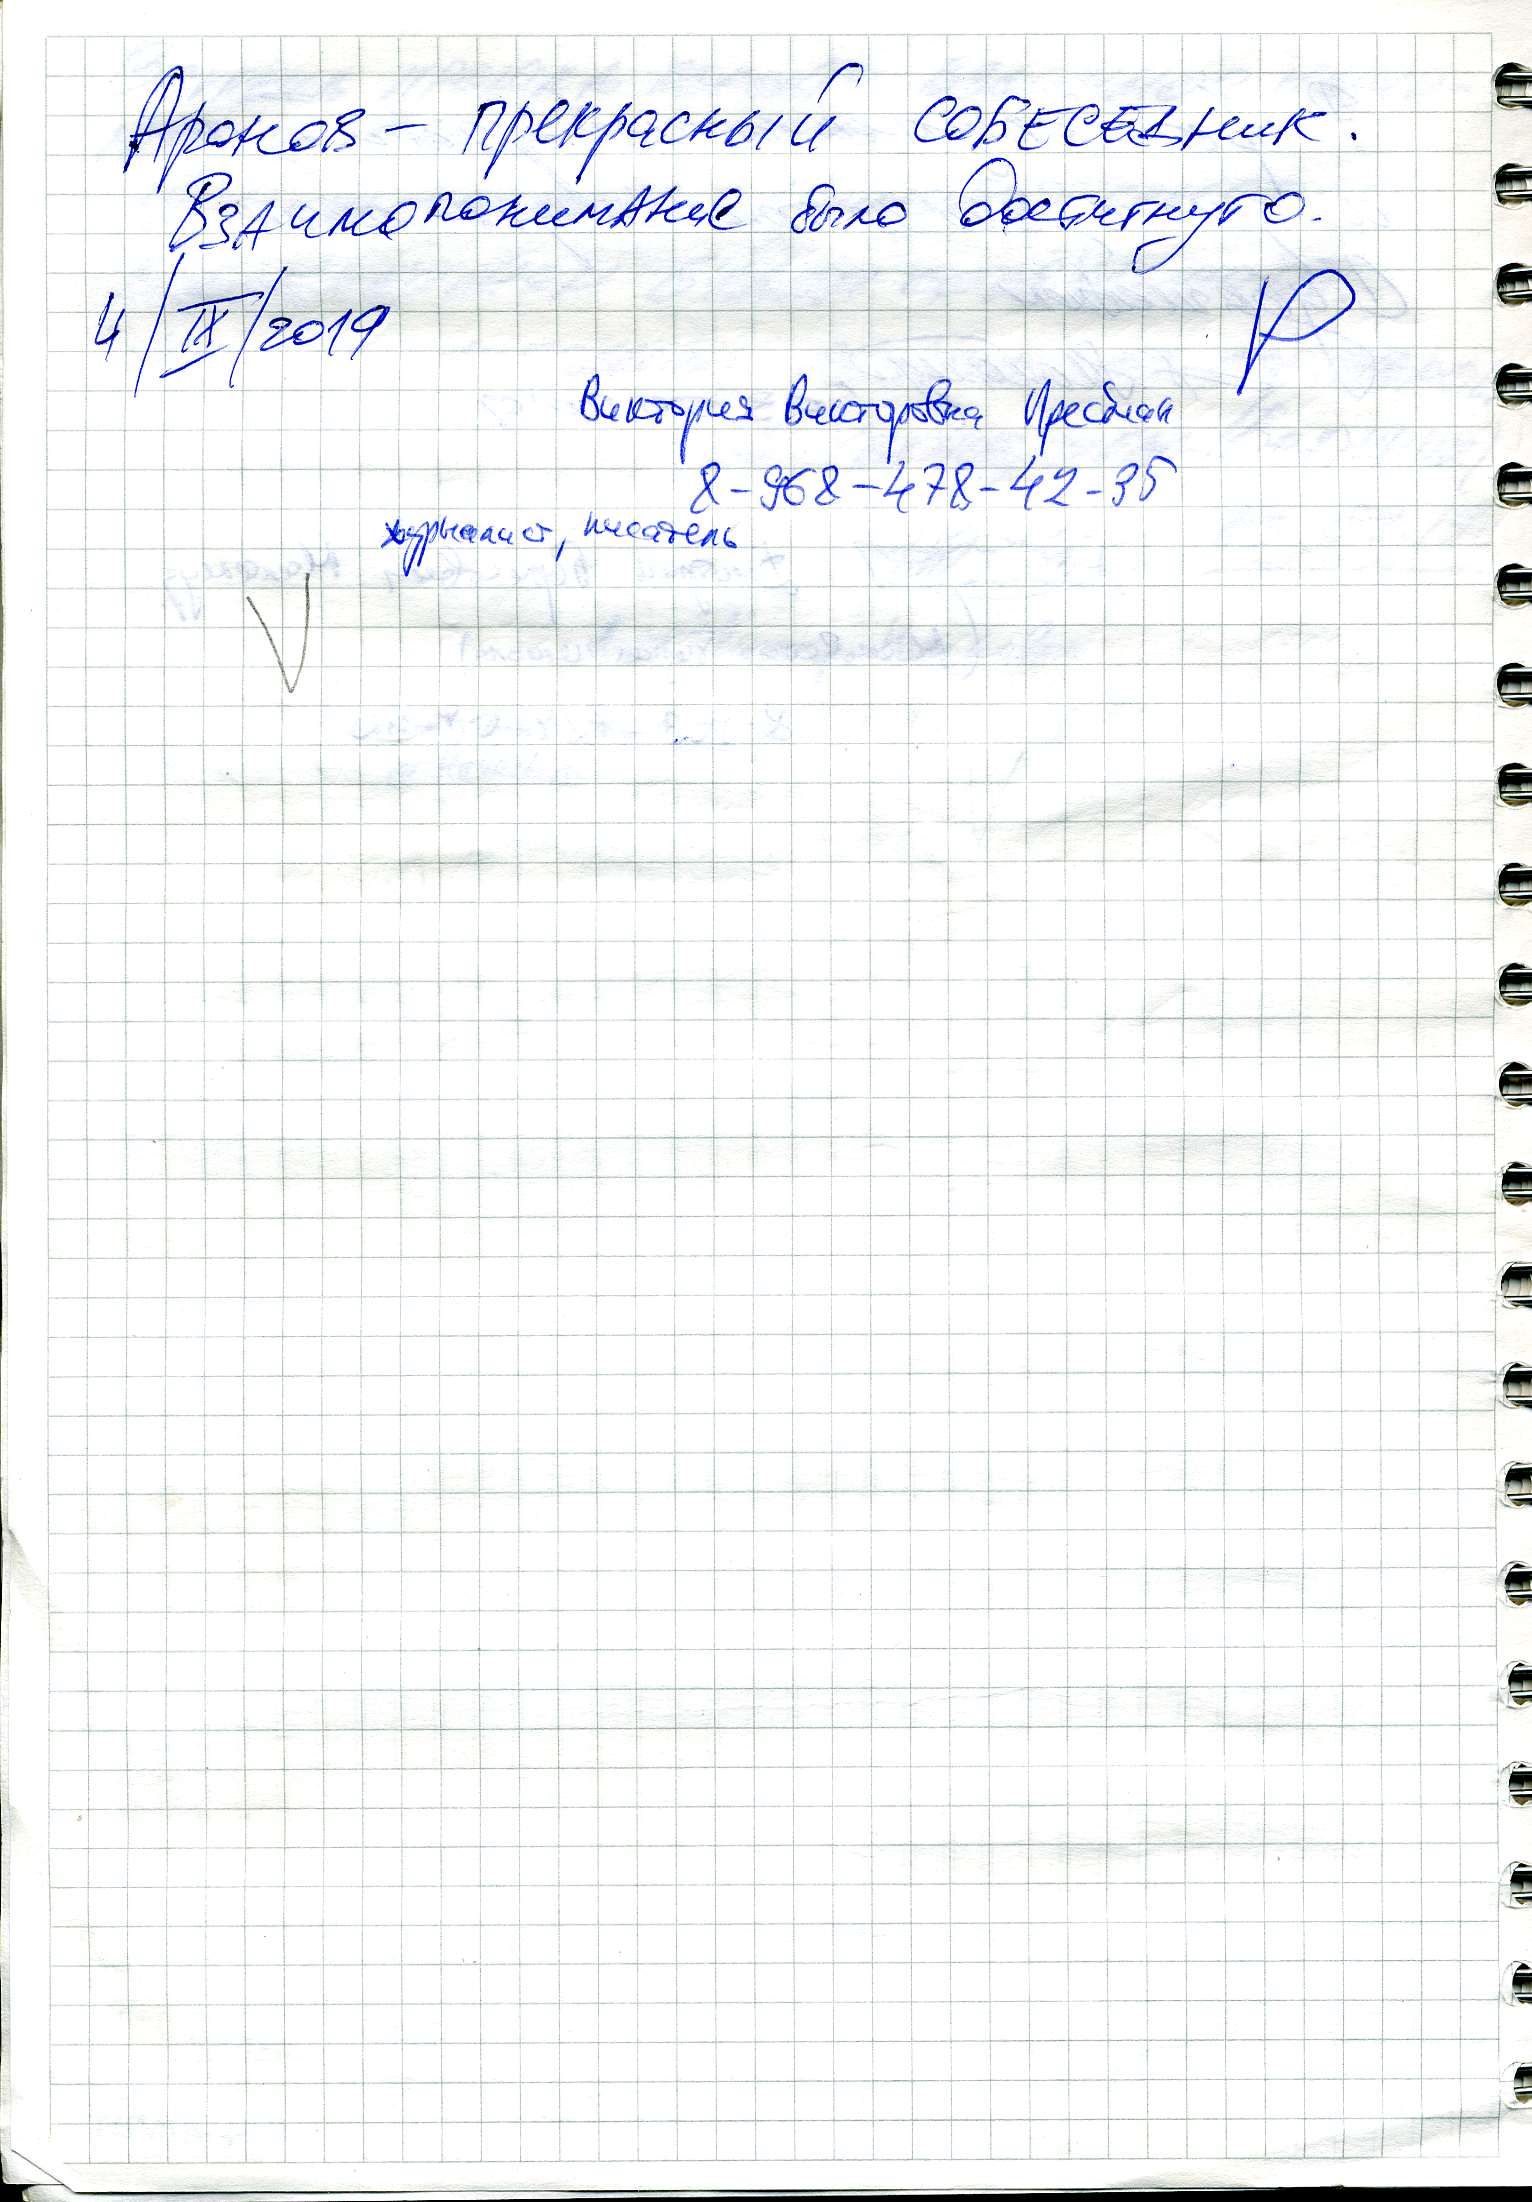 Аронов – прекрасный СОБЕСЕДНИК.
Взаимопонимание было достигнуто.
4/IX/2019
Виктория Викторовна Пресман
8-968-478-42-35
журналист, писатель